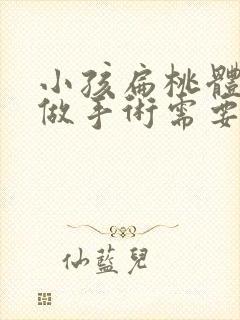 小孩扁桃體
做手術需要
仙藍兒